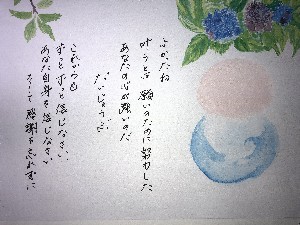 よかったね
叶うとき 願いのために努力した
あなたの心が強いのだ
だいじょうぶ
これからも
ずっとずっと信じなさい
あなた自身を信じなさい
そして 感謝を忘れずに